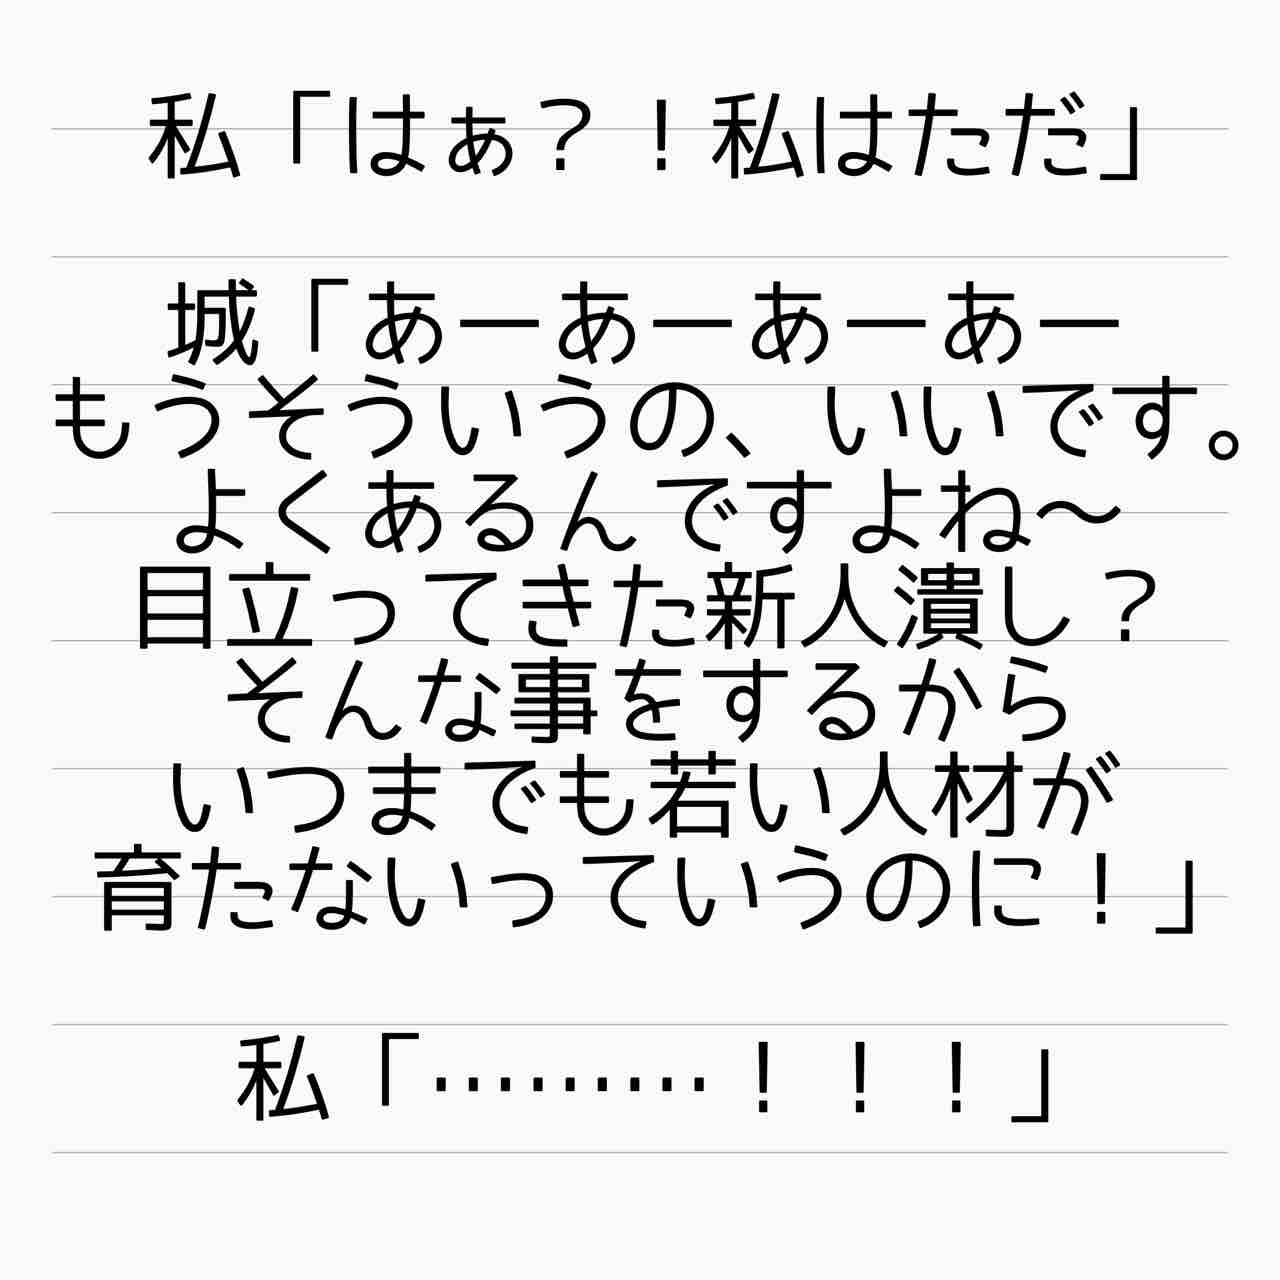 私「はぁ？！私はただ」
城「あーあーあーあー
もうそういうの、いいです。
よくあるんですよね〜
目立ってきた新人潰し？
そんな事をするから
いつまでも若い人材が
育たないっていうのに！」
私「………！！！」